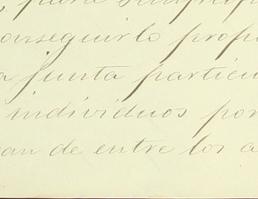 , para
conseguirlo prop
a junta particu
individuos por
an de entre los a